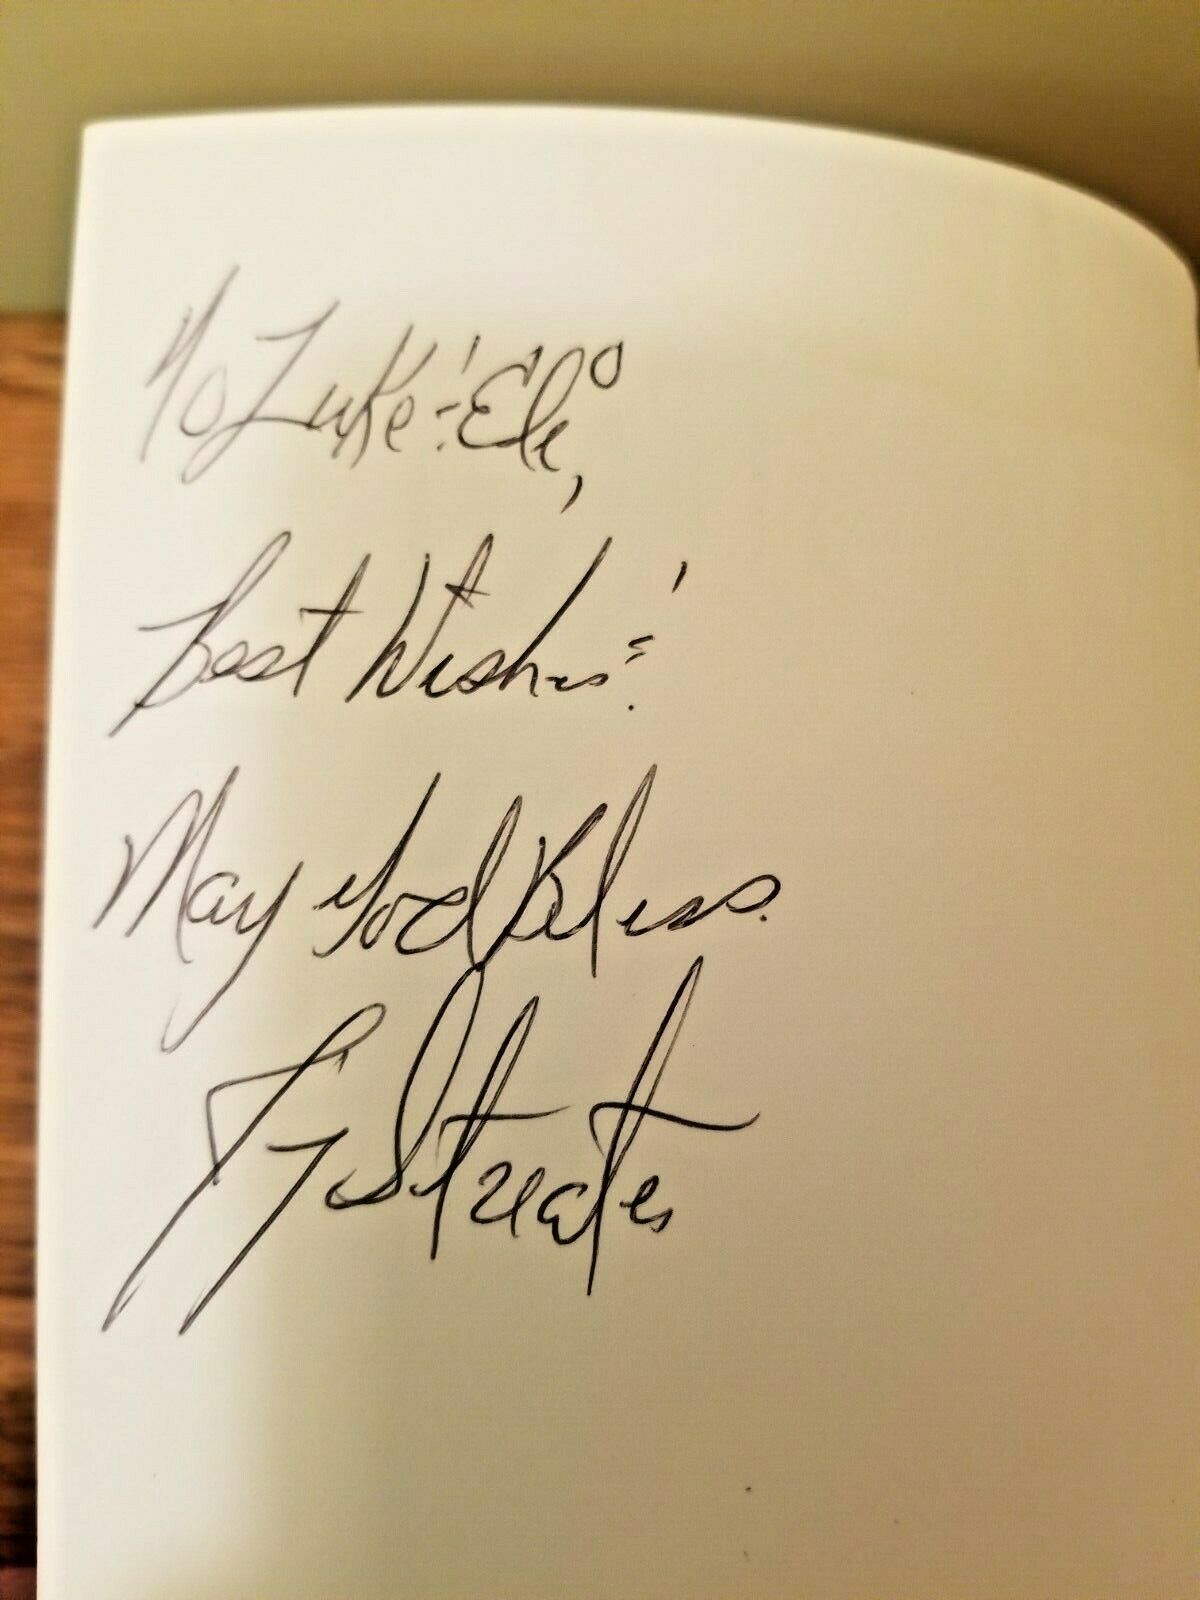 To Luke & Eli,
Best Wishes!
May God Bless.
Ty Streates